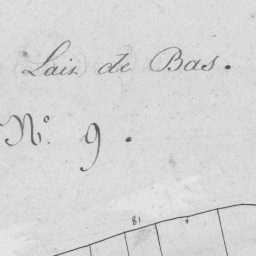 Lais de Bas.
N.º 9.
81